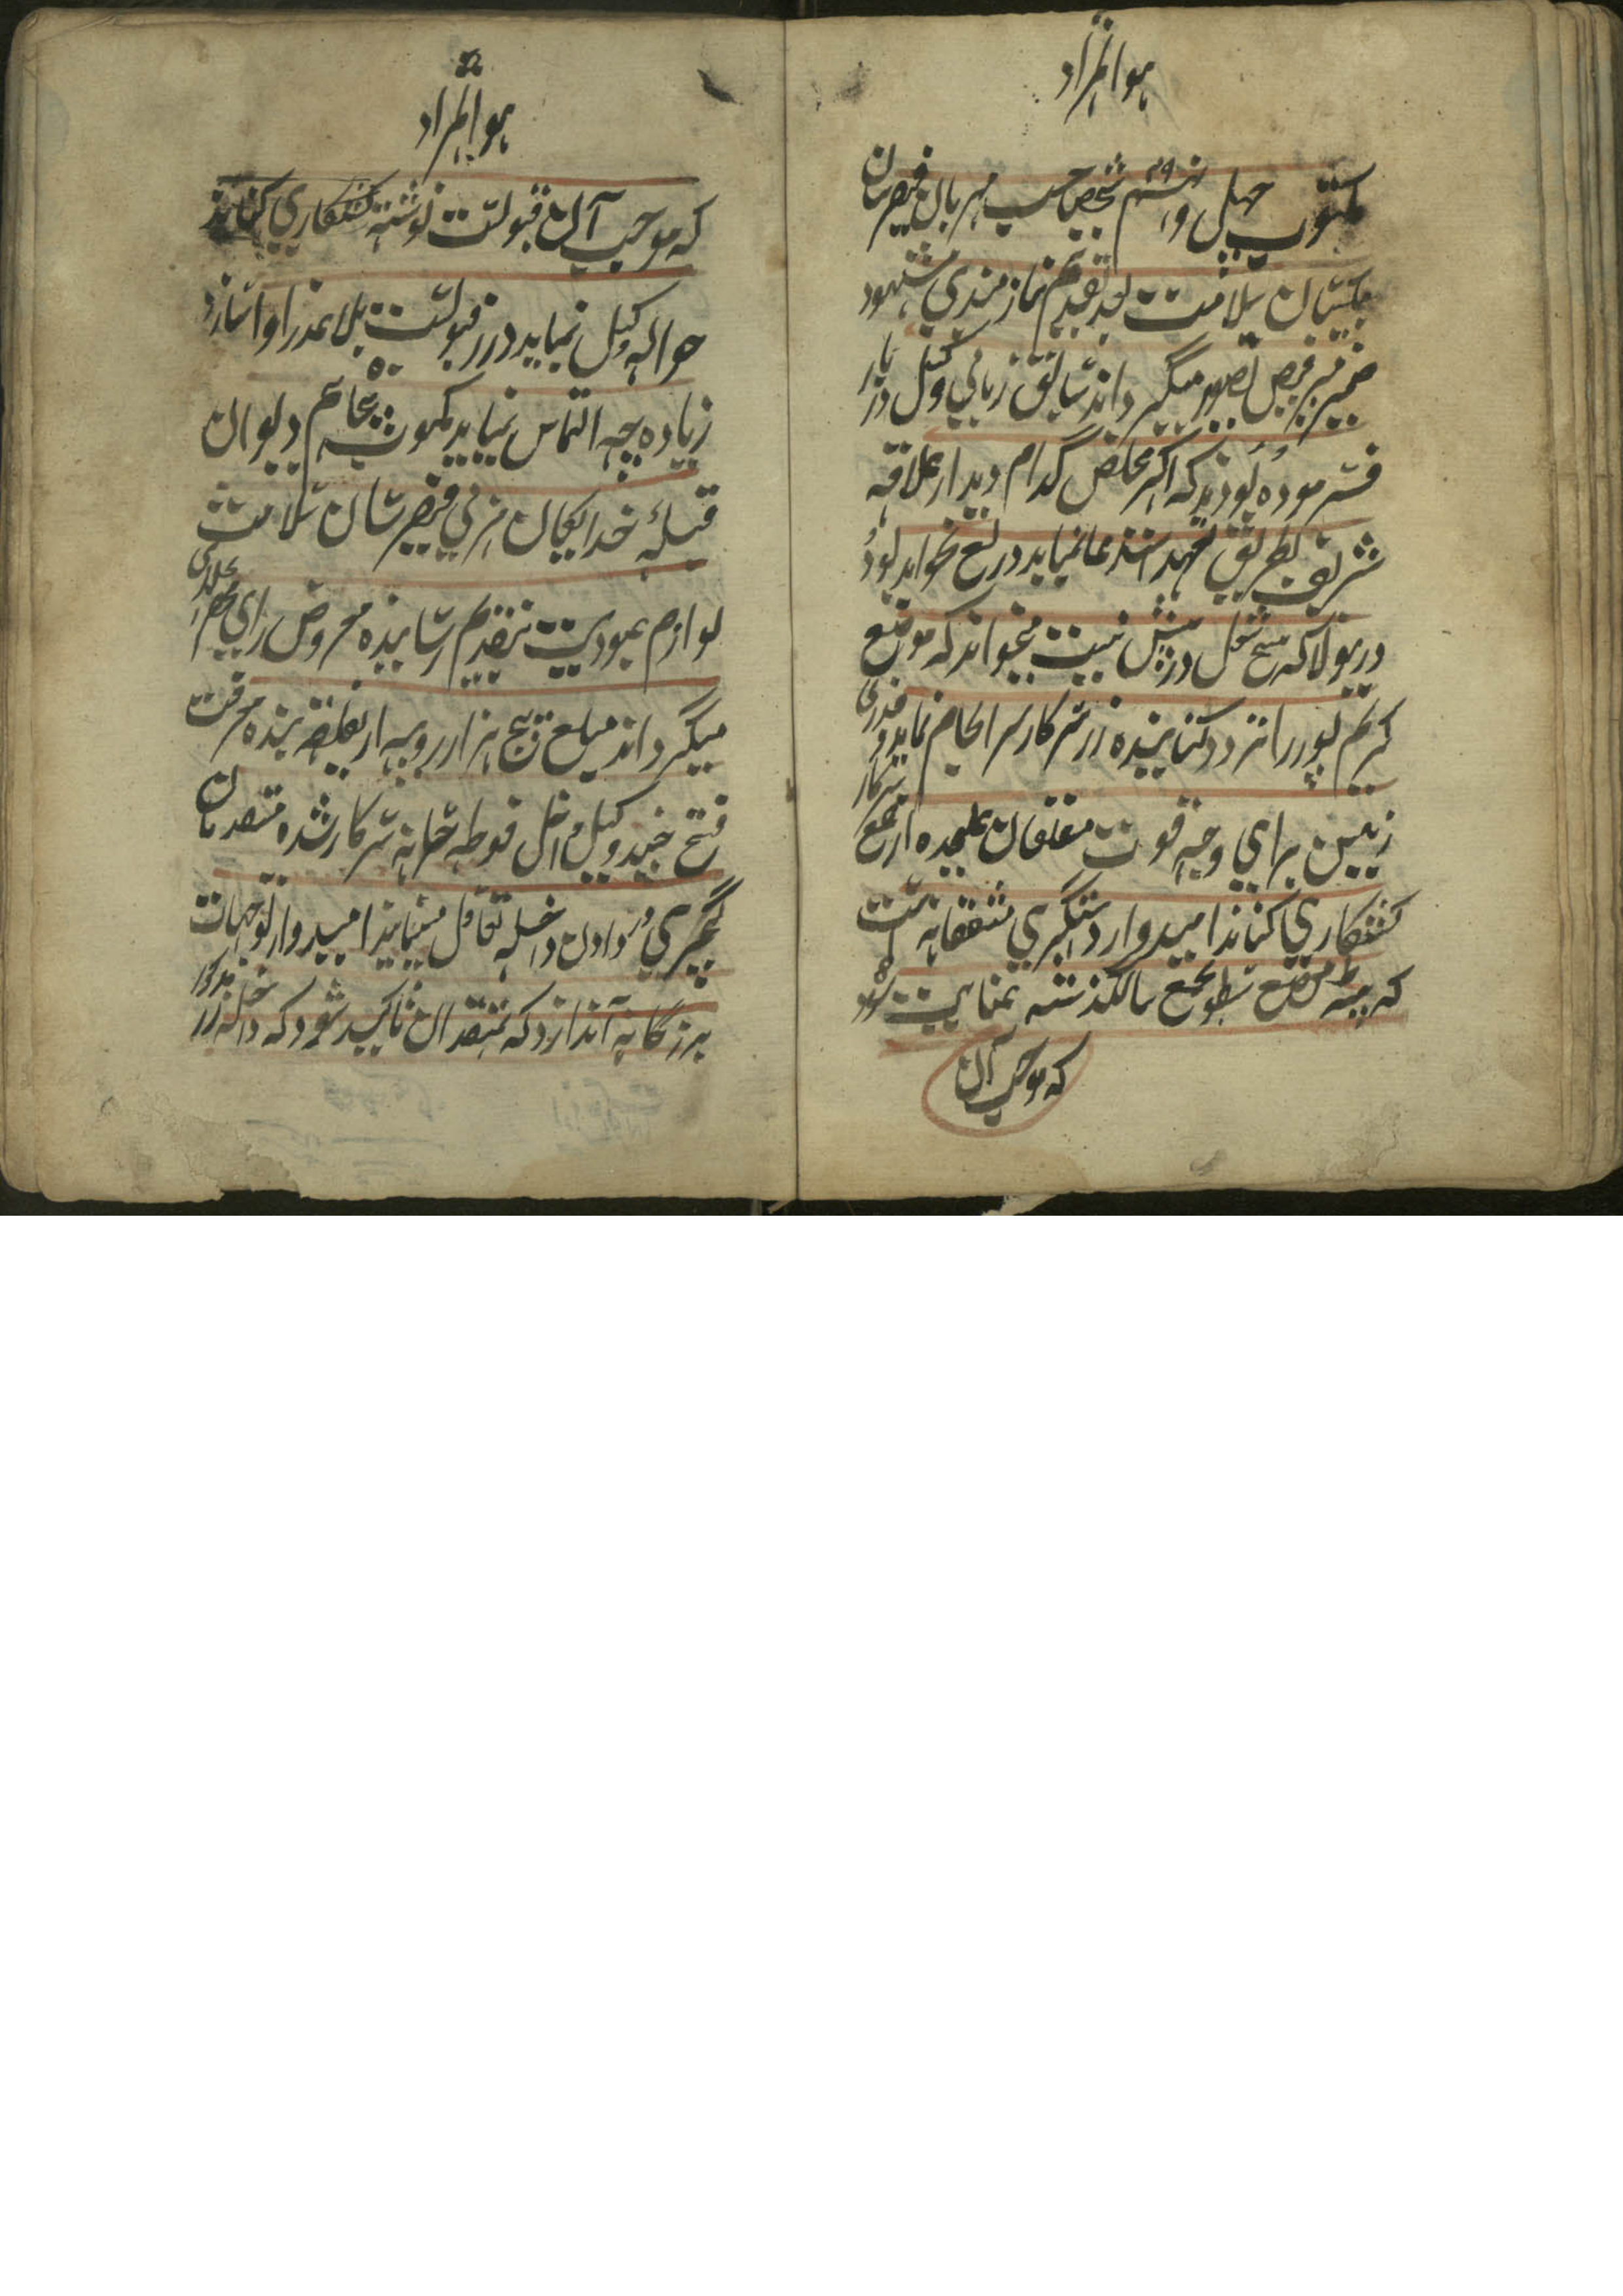 هو المراد
مکتوب چهل و نهم شخص صاحب مهربان فیض رسان
سلامت بعد تقدیم نیازمندی مشهود
ضمیر میگرداند سابق زبانی وکیل در باب
فرموده بودند که اگر مخلص کدام دیدار علاقه
شریف بطریق تعهد استدعا نماید دریغ نخواهد بود
درینولا که هیچ شغل در پیش نیست میخواهد که موضع
کریم پور را تردد کنانیده زر سرکار سرانجام نماید و قدری
زمین برای وجه قوت متعلقان علیحده از جمع سرکار
کشتکاری کناند امیدوار دستگیری مشفقانه است
که پته موضع مسطور بجمع سالگذشته عنایت شود
که موجب آن
هو المراد
که موجب آن قبولیت نوشته کشتکاری کناند
حواله وکیل نماید در زر قبولیت بلا عذر ادا سازد
زیاده چه التماس نماید مکتوب پنجاهم دیوان
قبله خدایگان فیض رسان سلامت
لوازم عبودیت بتقدیم رسانیده معروض رای
میگرداند مبلغ پنج هزار روپیه از بنده معرفت
فتح چند وکیل داخل فوطه خانه سرکار شده متصدیان
کچهری در دادن داخله تغافل مینمایند امیدوار توجهات
بزرگانه آندارد که بمتصدیان تاکید شود که داخله زر